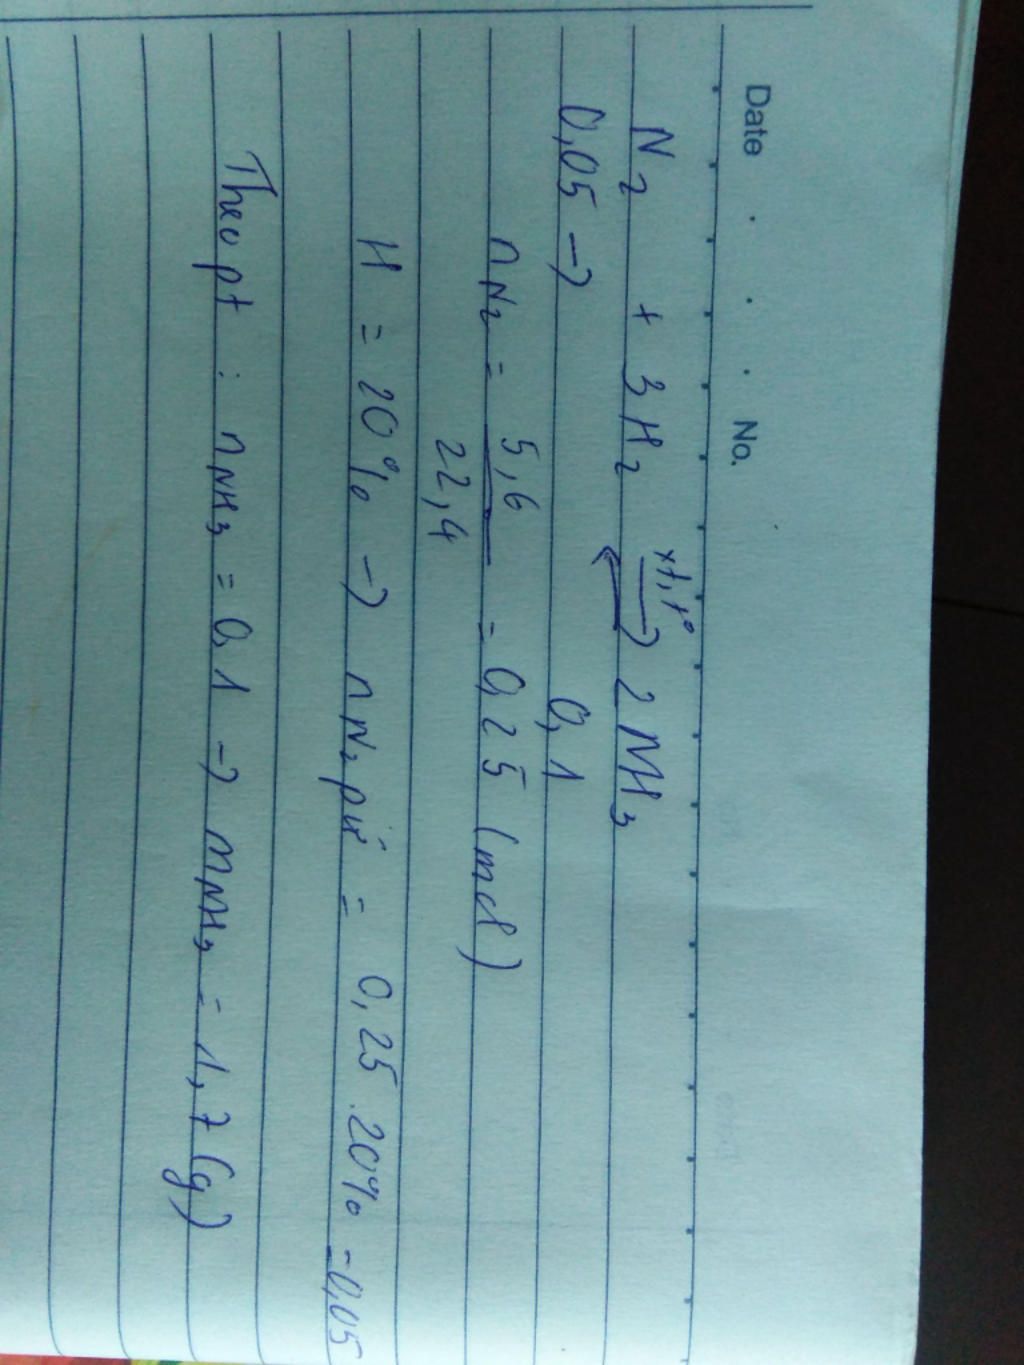 Date No.
xt, t°
N2 + 3H2 ⇌ 2NH3
0,05 → 0,1
nN2 = 5,6 / 22,4 = 0,25 (mol)
H = 20% → nN2 pứ = 0,25 . 20% = 0,05
Theo pt : nNH3 = 0,1 → mNH3 = 1,7 (g)